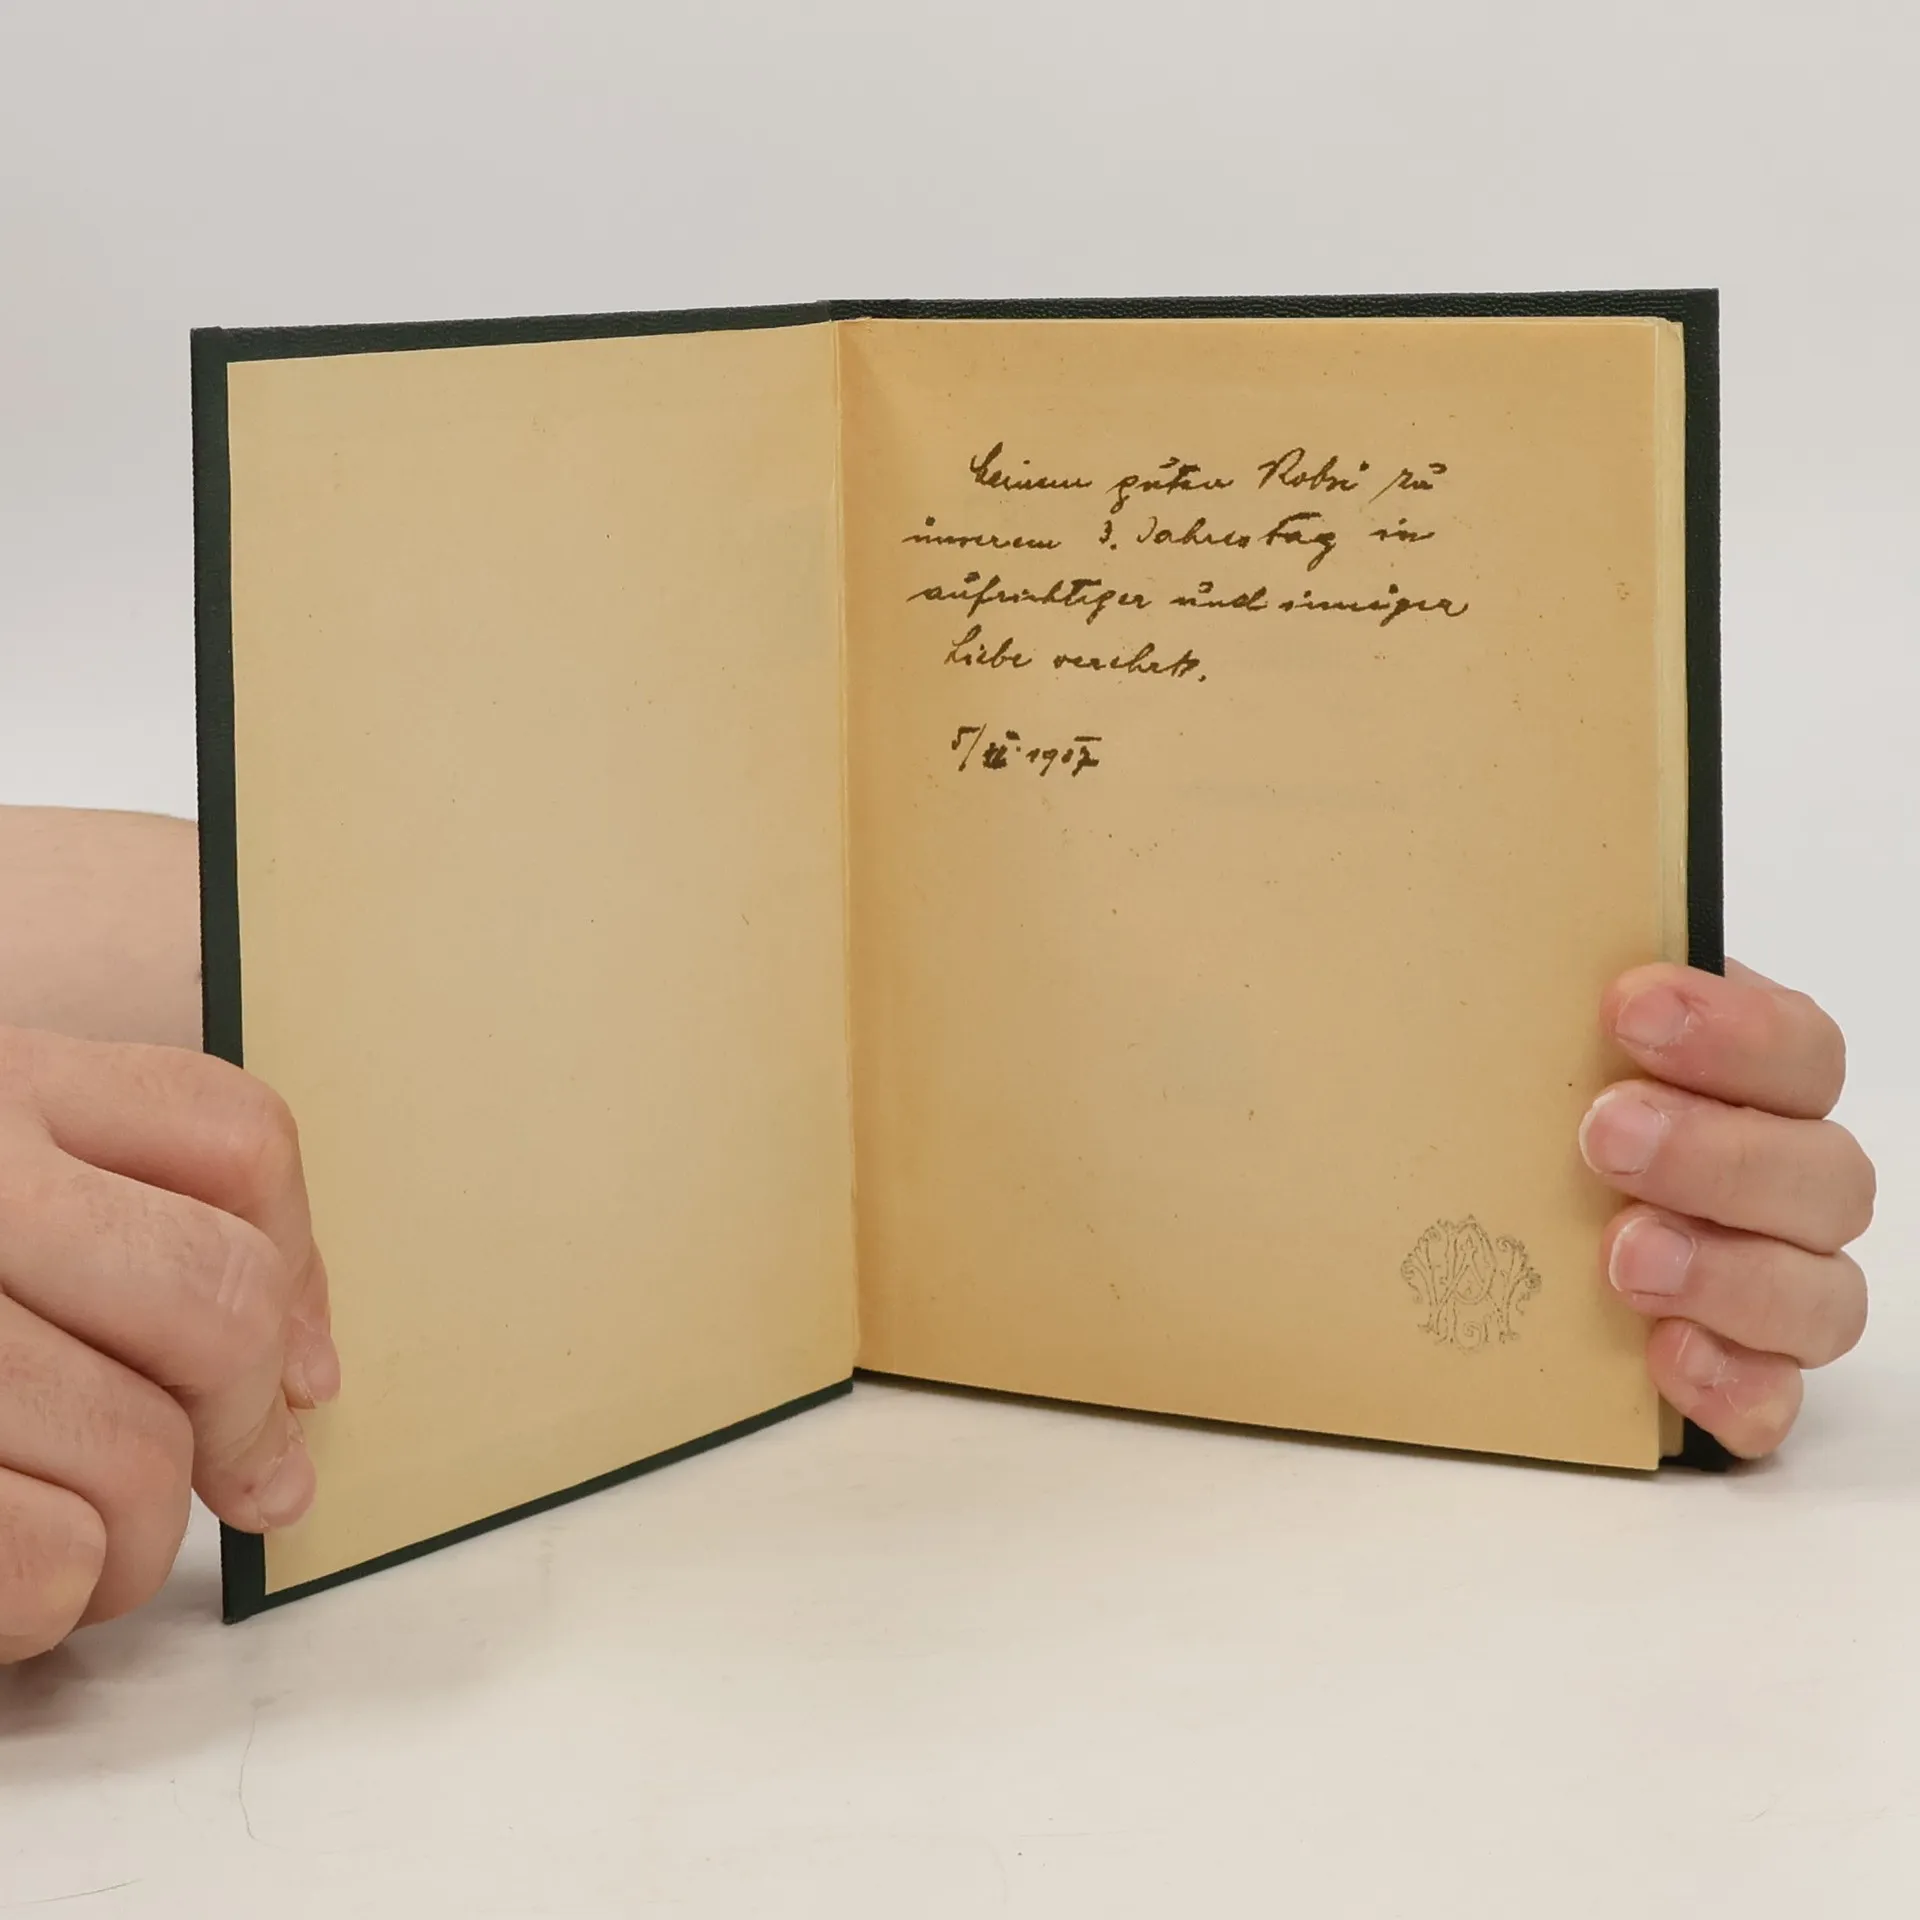 Meinem guten Robsi zu
unserem 3. Jahrestag in
aufrichtiger und inniger
Liebe verehrt.
5/II. 1917